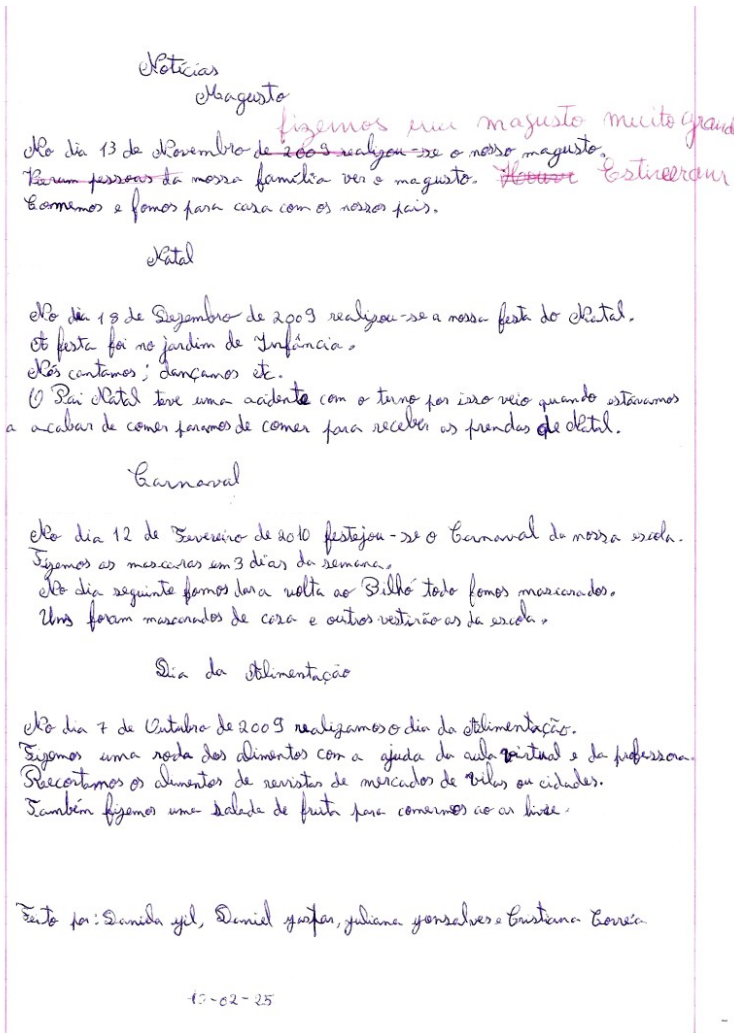 Notícias
Magusto
fizemos um magusto muito grand
No dia 13 de Novembro de 2009 realizou-se o nosso magusto.
Varam pessoas da nossa família ver o magusto. Houve Estiveram
Comemos e fomos para casa com os nossos pais.
Natal
No dia 18 de Dezembro de 2009 realizou-se a nossa festa do Natal.
A festa foi no jardim de Infância.
Nós cantamos; dançamos etc.
O Pai Natal teve uma acidente com o turno por isso veio quando estávamos
a acabar de comer paramos de comer para receber as prendas de Natal.
Carnaval
No dia 12 de Fevereiro de 2010 festejou-se o Carnaval da nossa escola.
Fizemos as mascaras em 3 dias da semana.
No dia seguinte fomos dar a volta ao Bilhó todo fomos mascarados.
Uns foram mascarados de casa e outros vestirão as da escola.
Dia da Alimentação
No dia 7 de Outubro de 2009 realizamos o dia da Alimentação.
Fizemos uma roda dos alimentos com a ajuda da aula virtual e da professora.
Recortamos os alimentos de revistas de mercados de vilas ou cidades.
Também fizemos uma salada de fruta para comermos ao ar livre.
Feito por: Daniela gil, Daniel gaspar, juliana gonsalves e Cristiana Correia
10-02-25